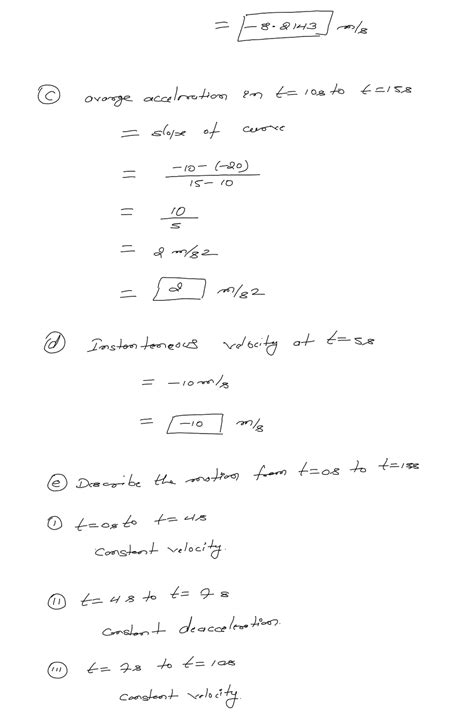 = -8.2143 m/s
(c) average acceleration in t=10s to t=15s
= slope of curve
= -10-(-20) / 15-10
= 10 / 5
= 2 m/s2
= 2 m/s2
(d) Instantaneous velocity at t=5s
= -10 m/s
= -10 m/s
(e) Describe the motion from t=0s to t=15s
(i) t=0s to t=4s
Constant velocity.
(ii) t=4s to t=7s
constant deacceleration.
(iii) t=7s to t=10s
constant velocity.